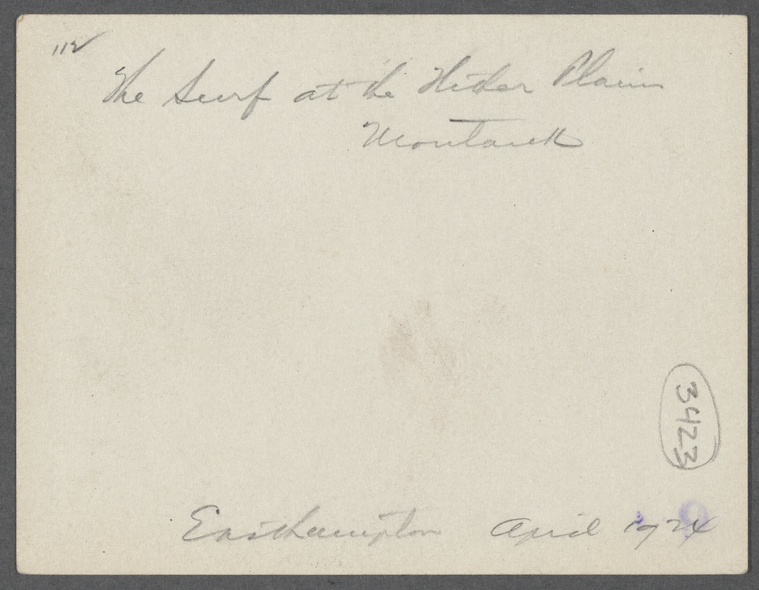 112
The Surf at the Hither Plains
Montauk
3423
Easthampton April 1924
9